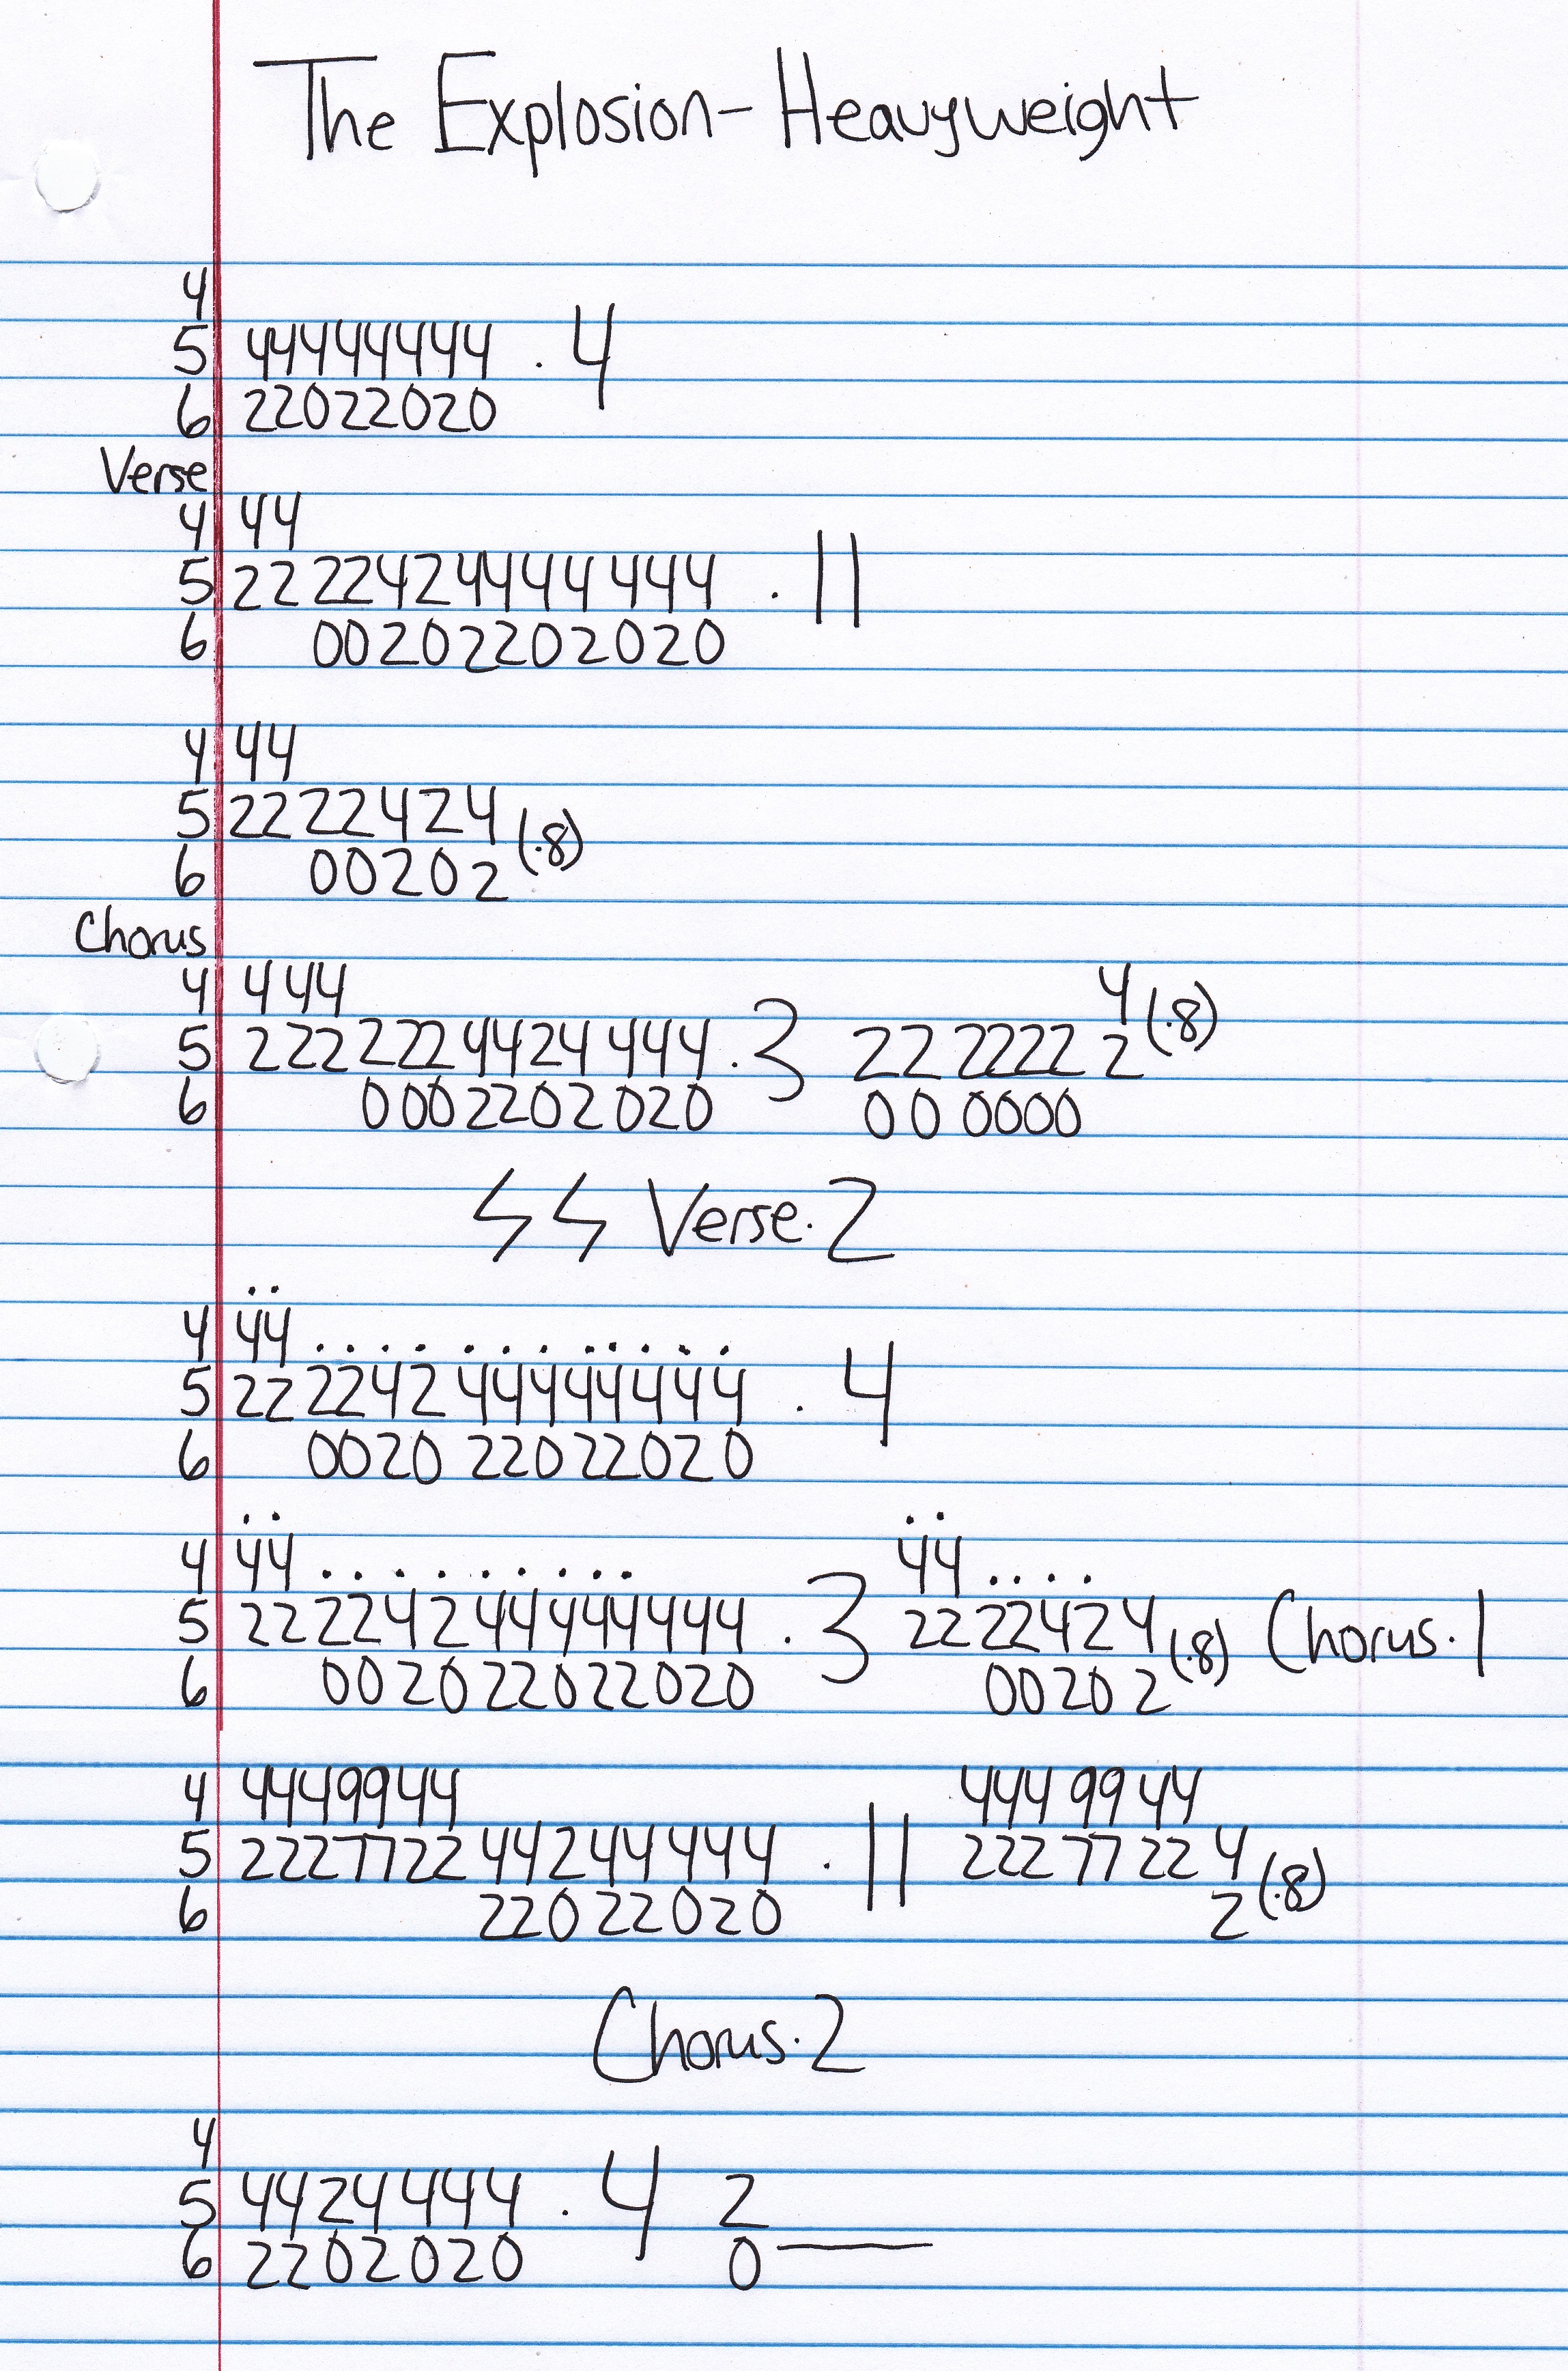 The Explosion - Heavyweight
4
5 44444444 . 4
6 22022020
Verse
4 44
5 22 22424444 444 . ||
6 00202202020
4 44
5 2222424 (.8)
6 00202
Chorus
4 444 4 (.8)
5 222 222 4424 444 . 3 22 2222 2
6 0002202020 00 0000
ϟϟ Verse . 2
4 44 . . . . . . . . . . . .
5 22 2242 44444444 . 4
6 0020 22022020
4 44 . . . . . . . . . . 44 . . . .
5 22224244444444 . 3 2222424 (.8) Chorus . 1
6 002022022020 00202
4 4449944 444 99 44
5 222772244244444 . || 222 77 22 4 (.8)
6 22022020 2
Chorus . 2
4
5 4424444 . 4 2
6 2202020 0